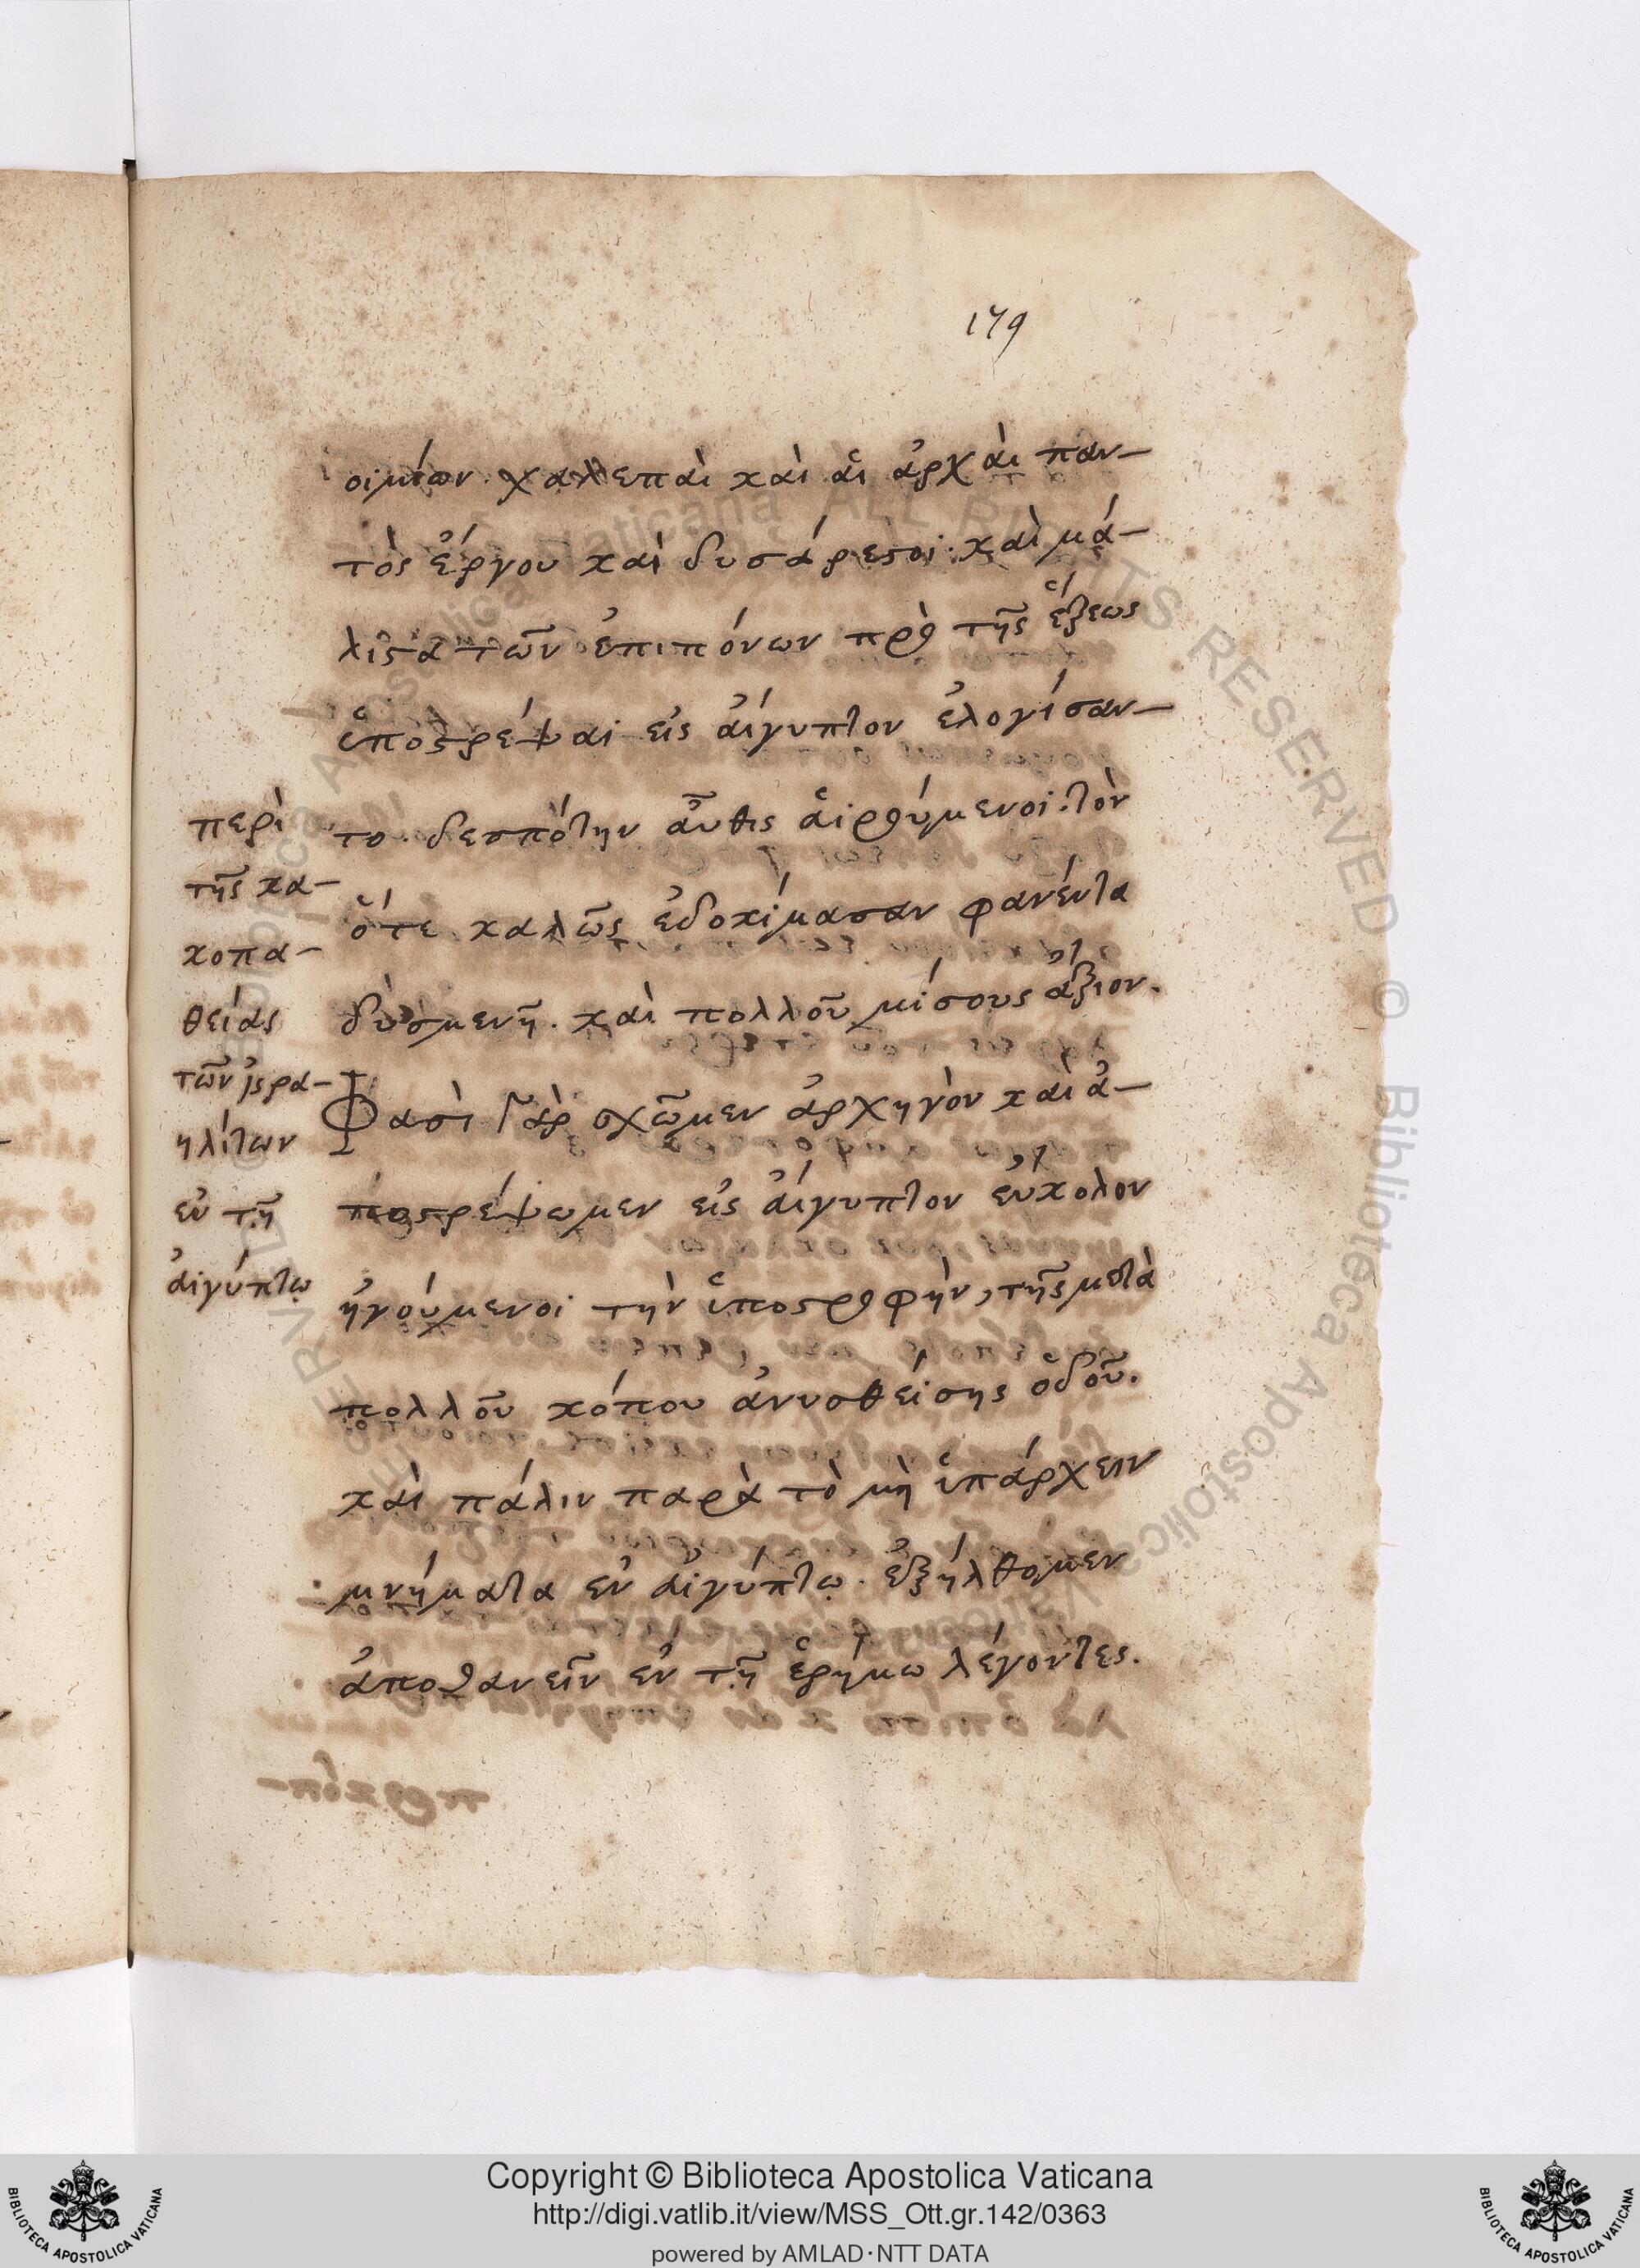 179
οιμίων. χαλεπαὶ καὶ αἱ ἀρχαὶ παν-
τὸς ἔργου καὶ δυσάρεστοι. καὶ μά-
λιστα τῶν ἐπιπόνων πρὸ τῆς ἕξεως
ὑποστρέψαι εἰς ἄιγυπτον ἐλογίσαν-
το. δεσπότην αὖθις αἱρούμενοι. τὸν
ὅτε καλῶς ἐδοκίμασαν φανέντα
δυσμενῆ. καὶ πολλοῦ μίσους ἄξιον.
Φασὶ Γὰρ σχῶμεν ἀρχηγὸν καὶ ἀ-
ποστρέψωμεν εἰς ἄιγυπτον εὔκολον
ἡγούμενοι τὴν ὑποστροφὴν, τῆς μετὰ
πολλοῦ κόπου ἀνυσθείσης ὁδοῦ.
καὶ πάλιν παρὰ τὸ μὴ ὑπάρχειν
μνήματα ἐν αἰγύπτῳ. ἐξήλθομεν
ἀποθανεῖν ἐν τῇ ἐρήμω λέγοντες.
περὶ
τῆς κα-
κοπα-
θείας
τῶν ἰσρα-
ηλίτων
ἐν τῇ
αἰγύπτῳ
Copyright © Biblioteca Apostolica Vaticana
http://digi.vatlib.it/view/MSS_Ott.gr.142/0363
powered by AMLAD·NTT DATA
BIBLIOTECA APOSTOLICA VATICANA
BIBLIOTECA APOSTOLICA VATICANA